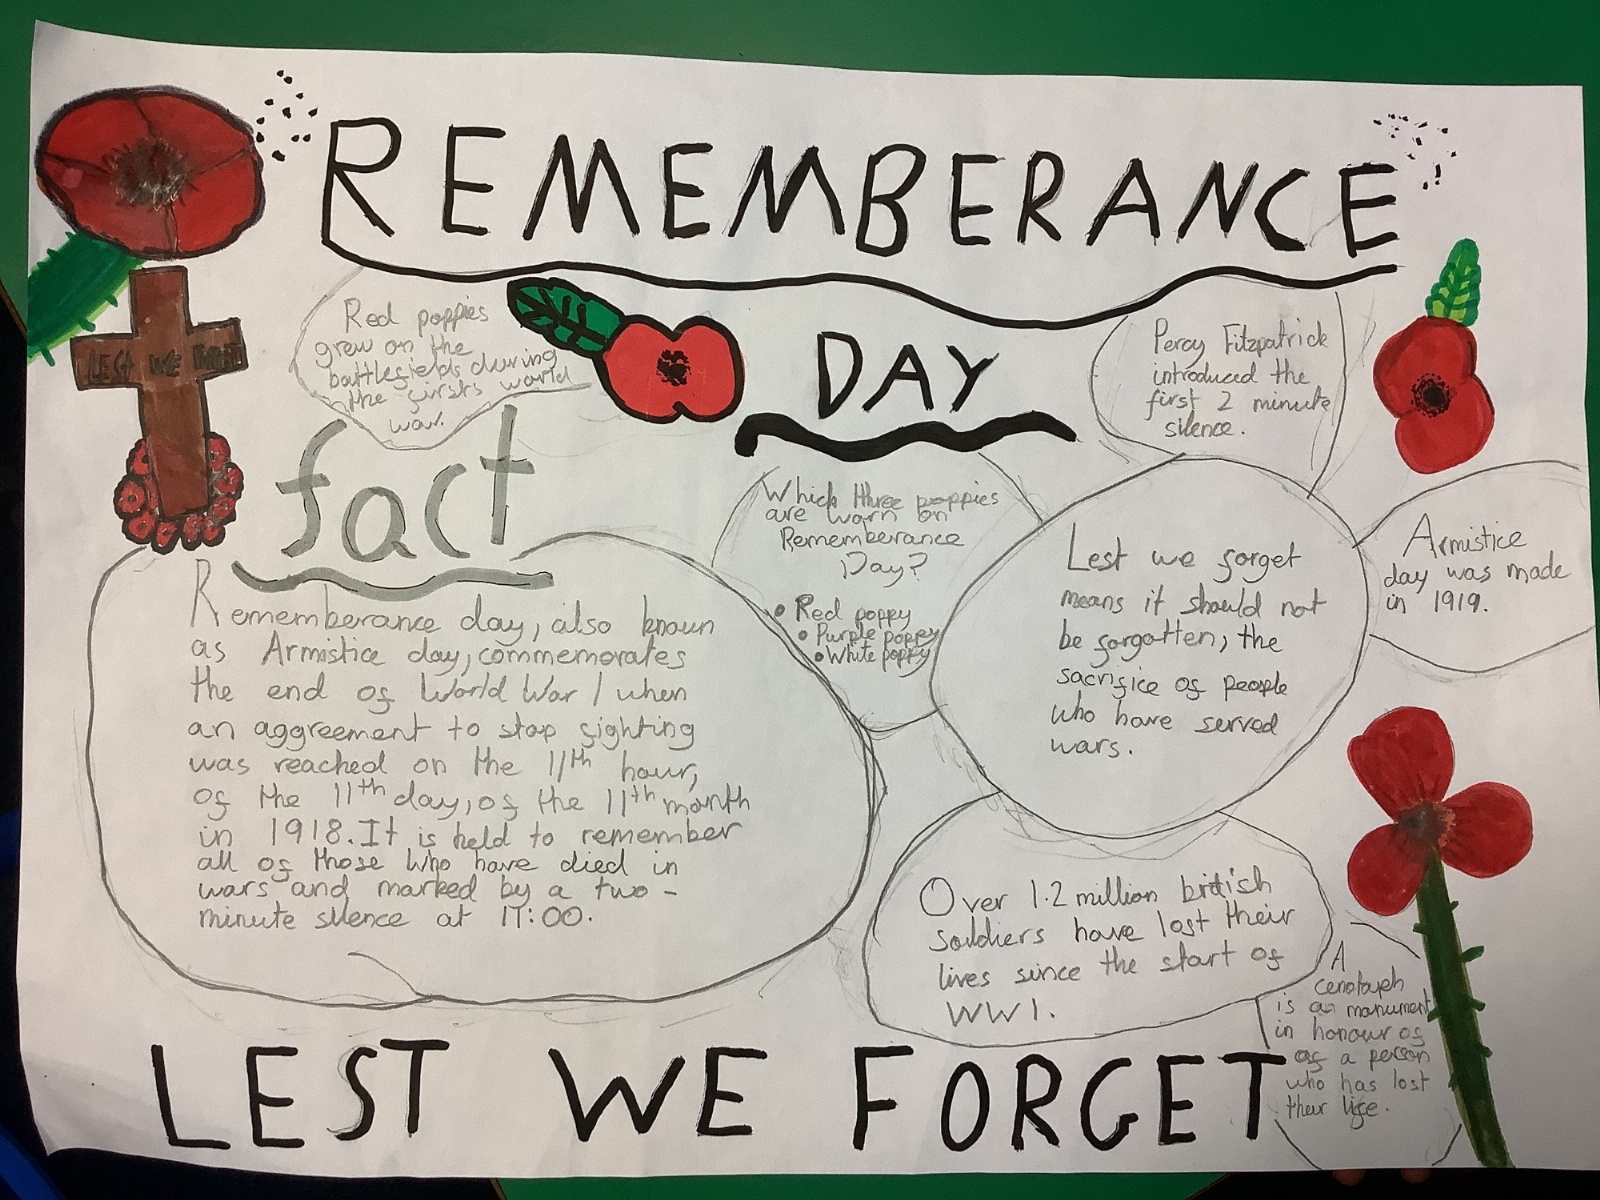 REMEMBERANCE
DAY
LEST WE FORGET
Red poppies
grew on the
battlefields during
the firsts world
war.
Percy Fitzpatrick
introduced the
first 2 minute
silence.
fact
Rememberance day, also known
as Armistice day, commemorates
the end of World War 1 when
an aggreement to stop fighting
was reached on the 11th hour,
of the 11th day, of the 11th month
in 1918. It is held to remember
all of those who have died in
wars and marked by a two-
minute silence at 11:00.
Which three poppies
are worn on
Rememberance
Day?
• Red poppy
• Purple poppy
• White poppy
Lest we forget
means it should not
be forgotten, the
sacrifice of people
who have served
wars.
Armistice
day was made
in 1919.
Over 1.2 million british
souldiers have lost their
lives since the start of
WW1.
A
cenotaph
is a monument
in honour of
of a person
who has lost
their life.
LEST WE FORGET